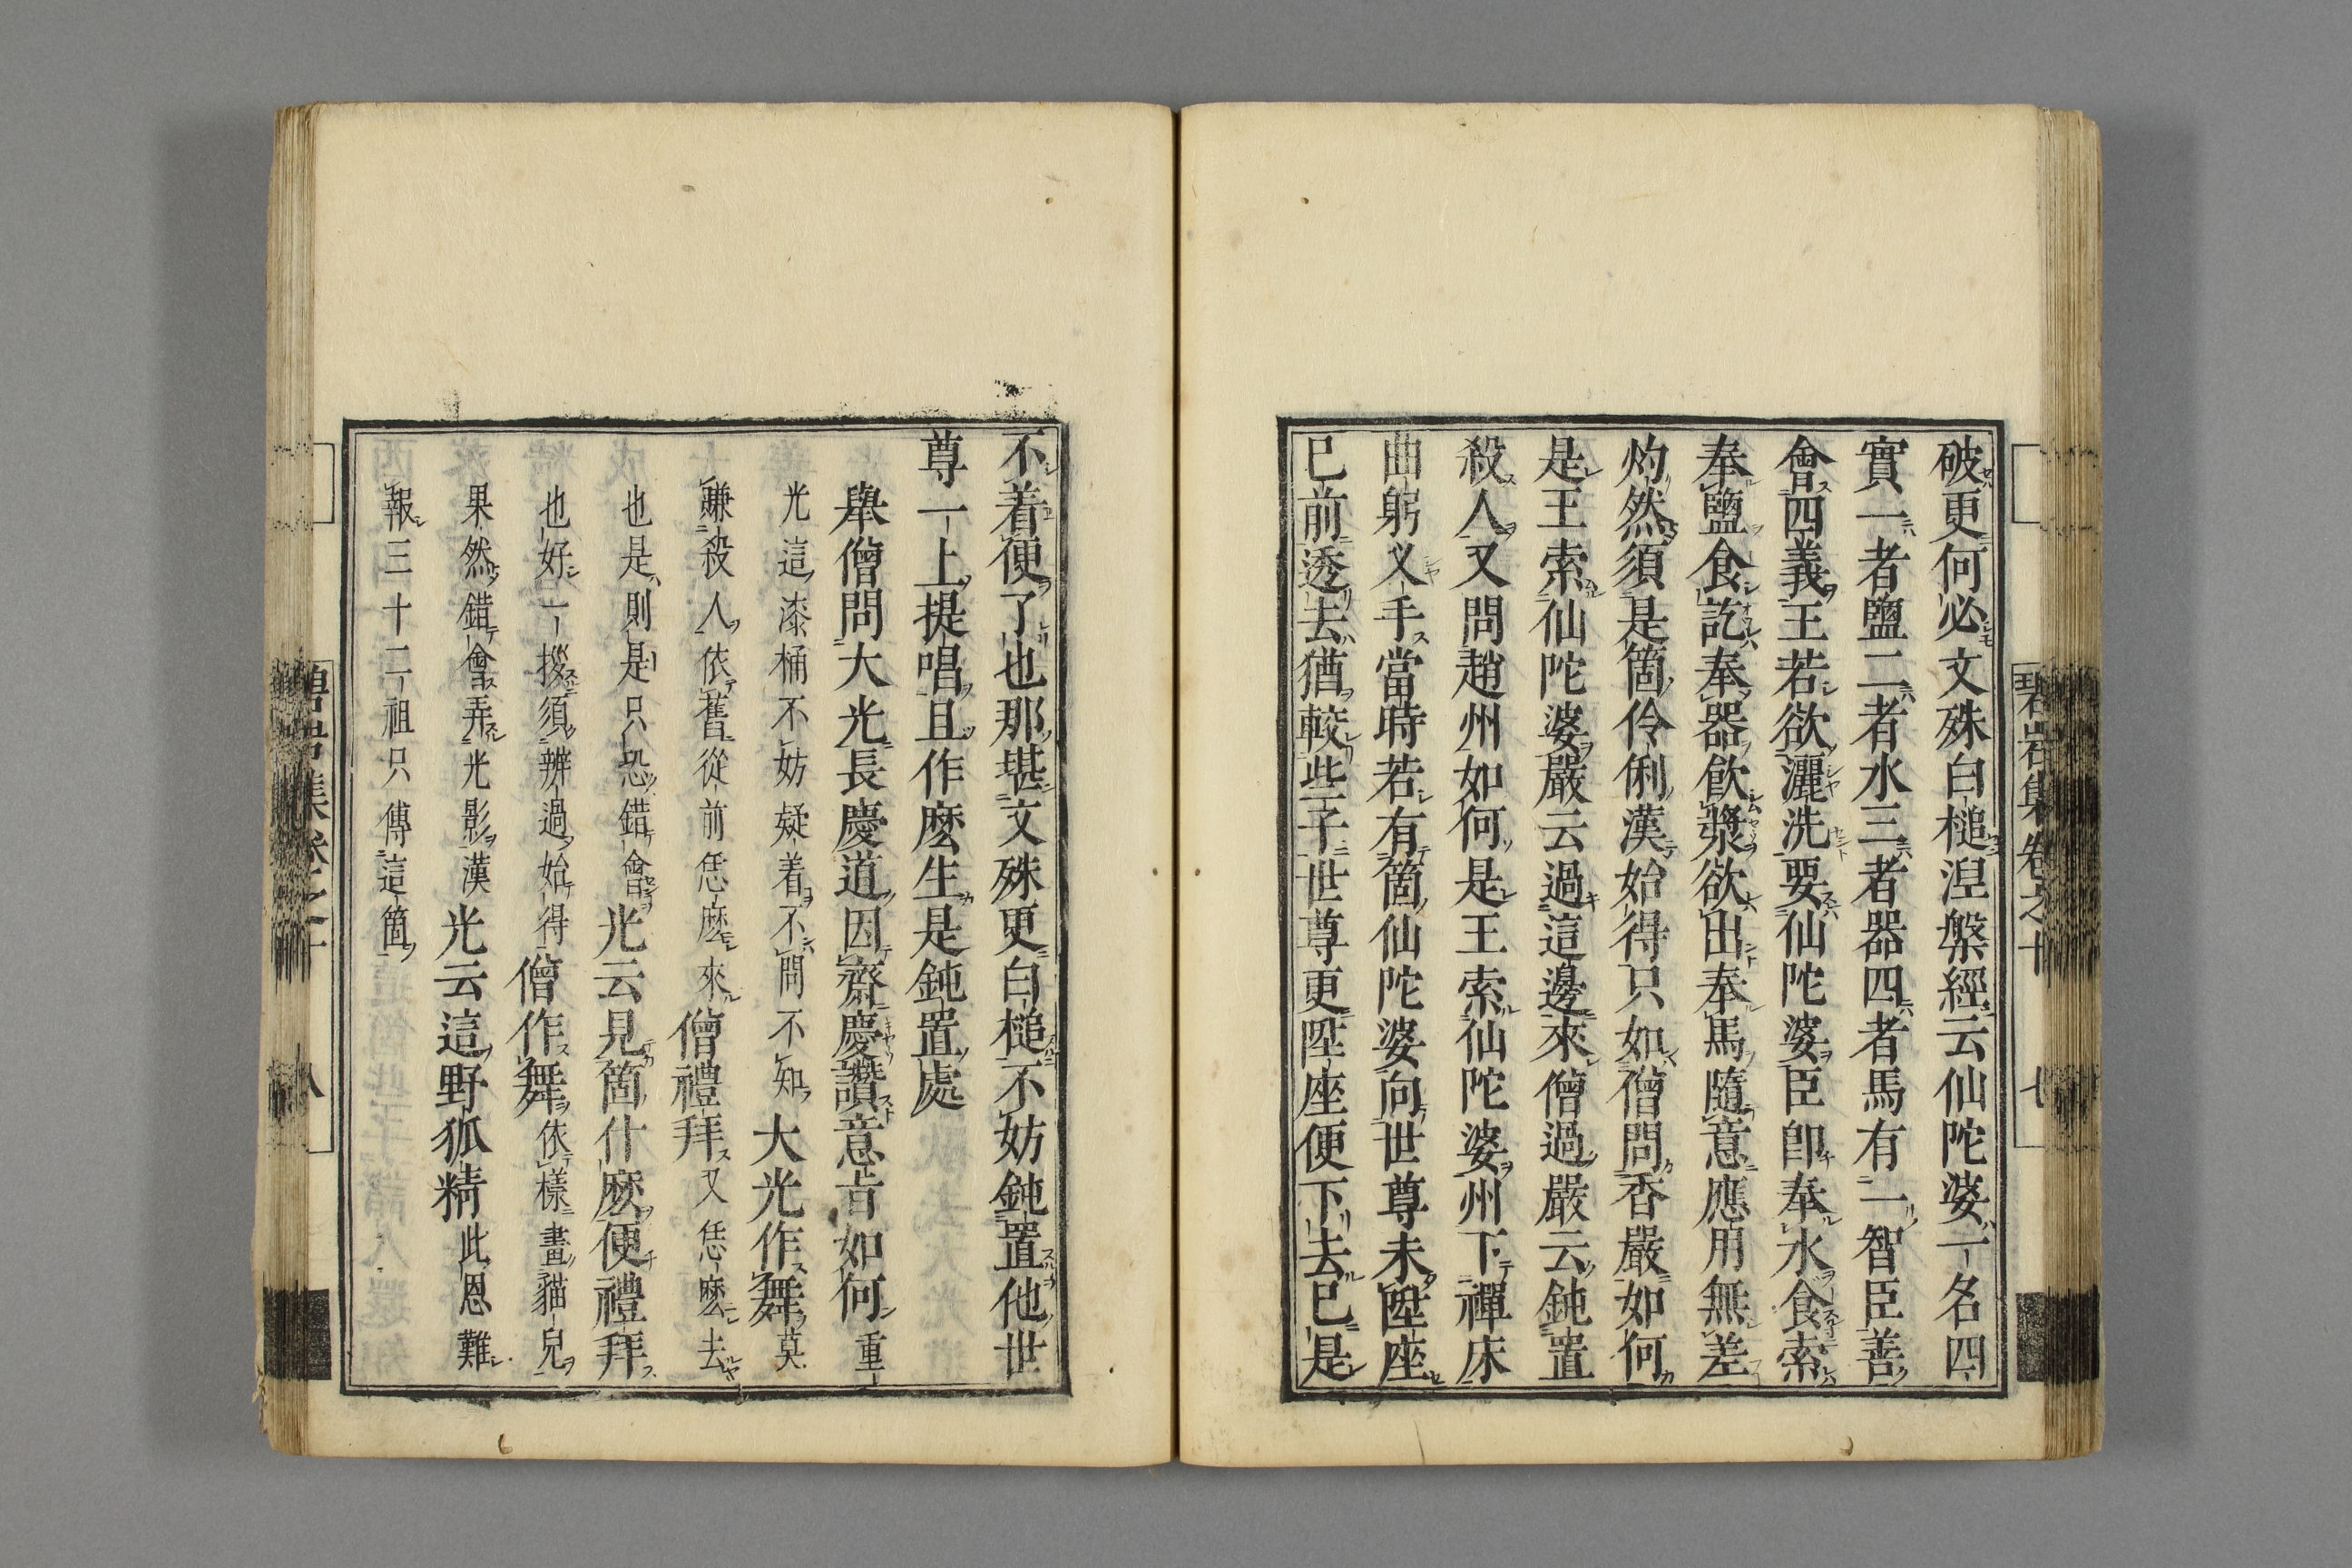 破更何必文殊白槌涅槃經云仙陀婆一名四
實一者鹽二者水三者器四者馬有一智臣善
會四義王若欲灑洗要仙陀婆臣即奉水食索
奉鹽食訖奉器飲漿欲出奉馬隨意應用無差
灼然須是箇伶俐漢始得只如僧問香嚴如何
是王索仙陀婆嚴云過這邊來僧過嚴云鈍置
殺人又問趙州如何是王索仙陀婆州下禪床
曲躬叉手當時若有箇仙陀婆向世尊未陞座
已前透去猶較些子世尊更陞座便下去已是
碧岩集卷之十 七
不着便了也那堪文殊更白槌不妨鈍置他世
尊一上提唱且作麽生是鈍置處
舉僧問大光長慶道因齋慶讚意旨如何重
光這漆桶不妨疑着不問不知大光作舞莫
賺殺人依舊從前恁麽來僧禮拜又恁麽去
也是則是只恐錯會光云見箇什麽便禮拜
也好一拶須辨過始得僧作舞依樣畫猫兒
果然錯會弄光影漢光云這野狐精此恩難
報三十二祖只傳這箇
碧岩集卷之十 八